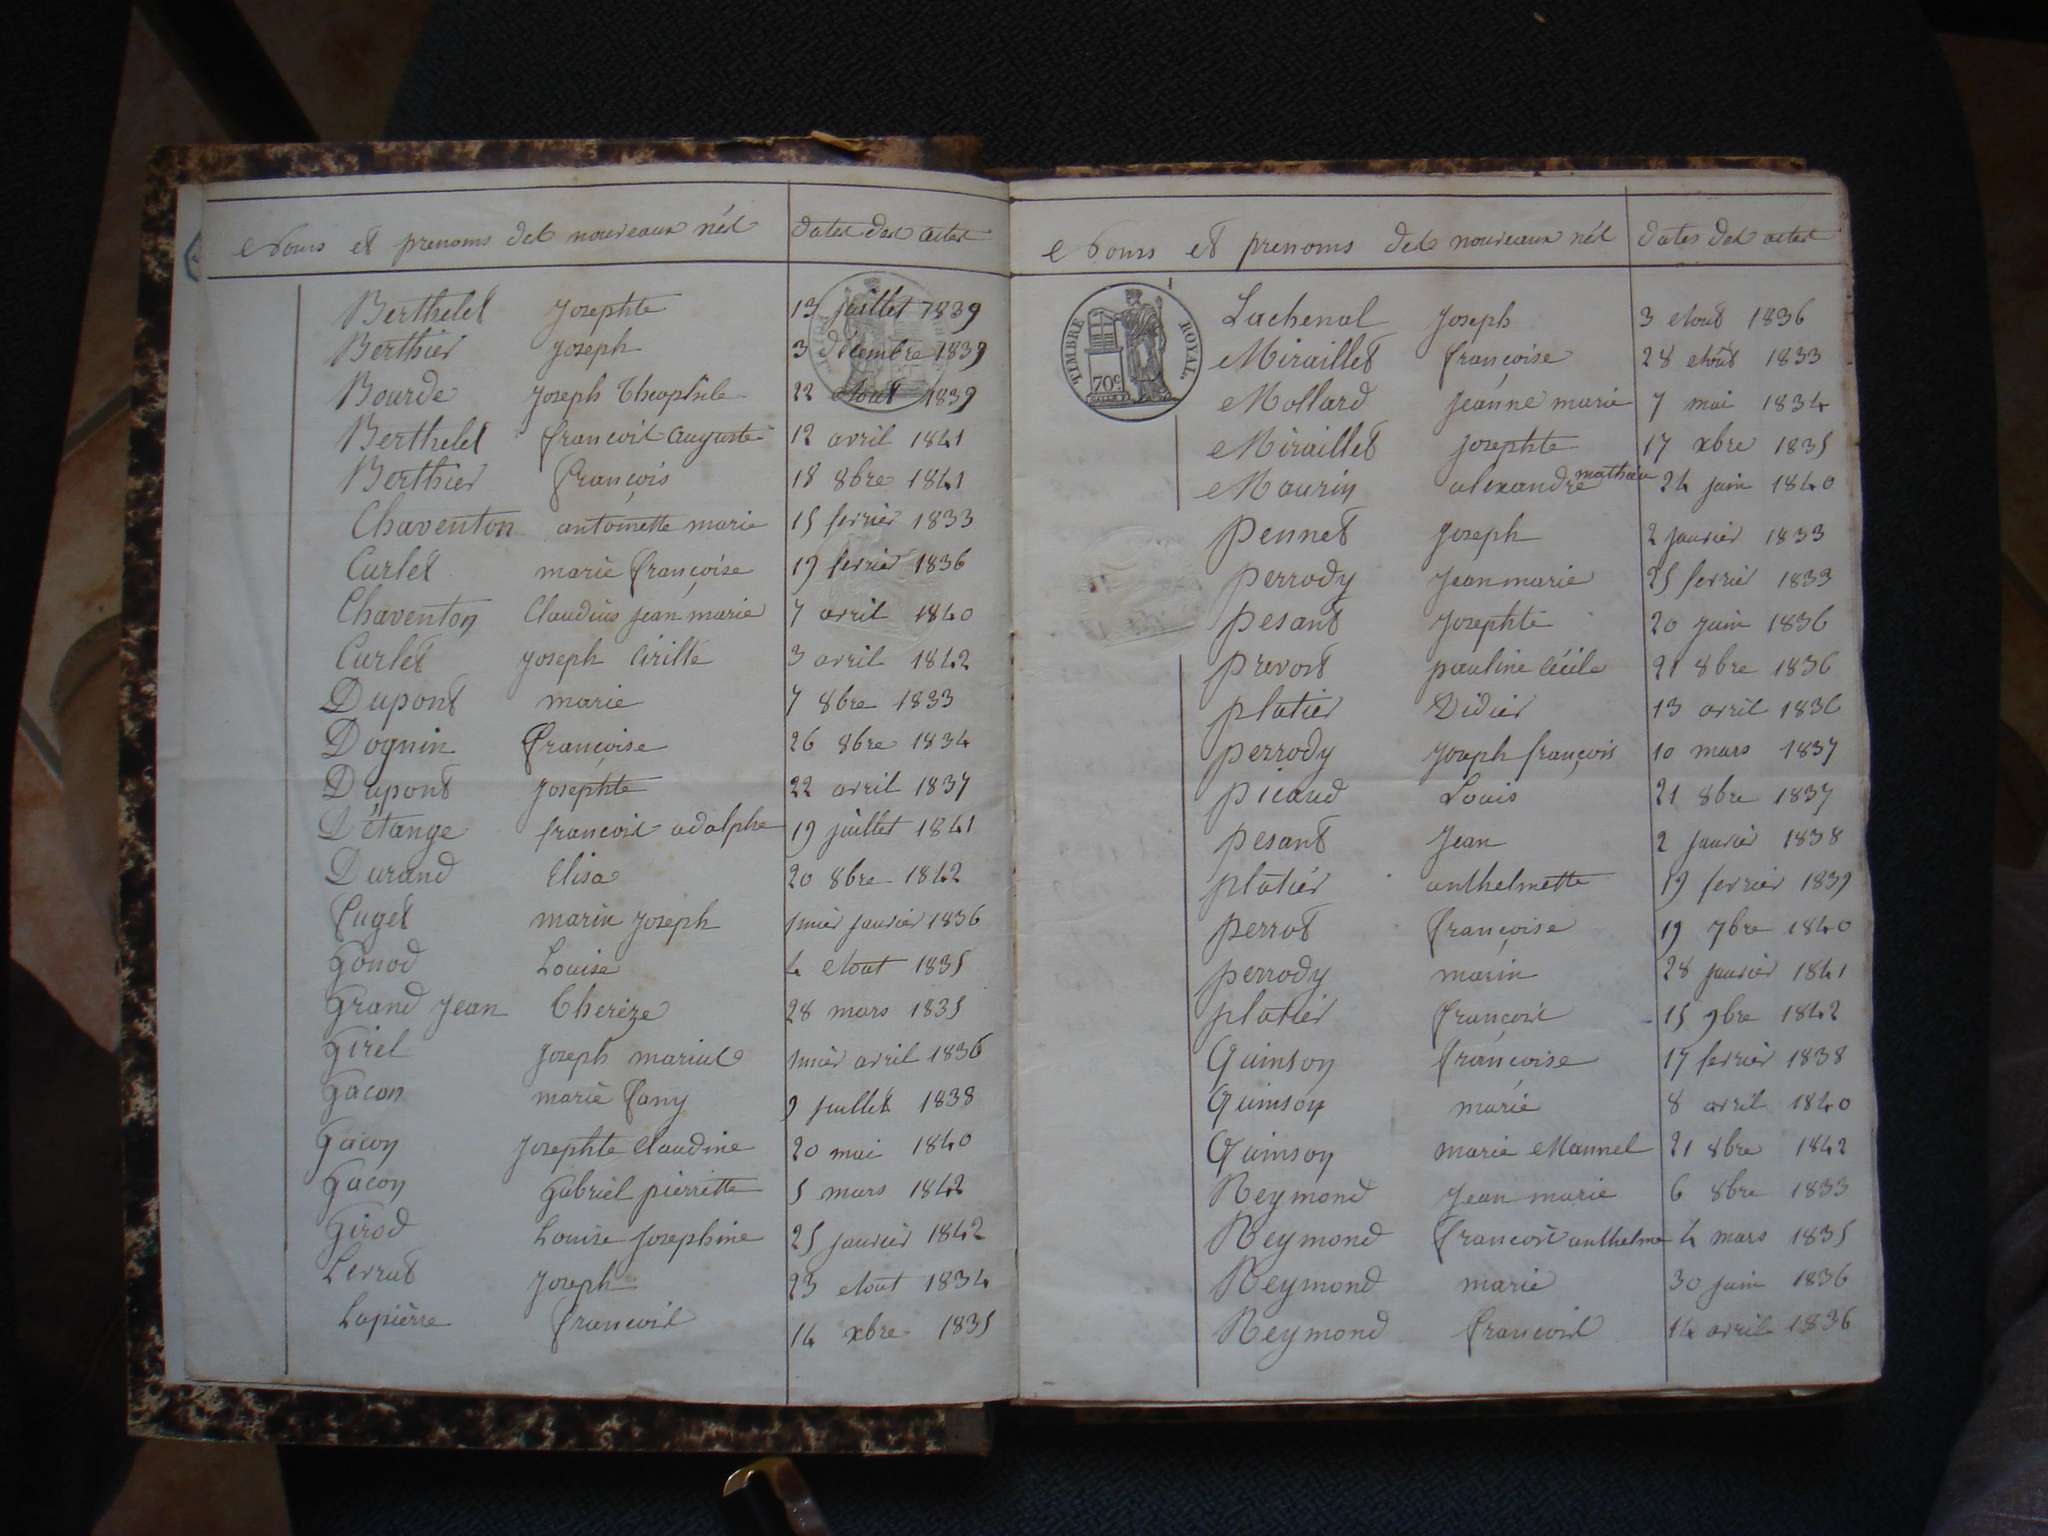 Noms et prenoms des nouveaux nés dates des actes
Berthelet Josephte 13 juillet 1839
Berthier Joseph 3 decembre 1839
Bourde Joseph Theophile 22 Aout 1839
Berthelet françois Auguste 12 avril 1841
Berthier françois 18 8bre 1841
Chaventon antoinette marie 15 fevrier 1833
Curlet marie françoise 19 fevrier 1836
Chaventon Claudius jean marie 7 avril 1840
Curlet Joseph Cirille 3 avril 1842
Dupont marie 7 8bre 1833
Dognin françoise 26 8bre 1834
Dupont Josephte 22 avril 1837
D'étange françois adolphe 19 juillet 1841
Durand Elisa 20 8bre 1842
fuget marin Joseph 1mier janvier 1836
Gonod Louise 4 Aout 1835
Grand Jean Thereze 28 mars 1835
Girel Joseph marius 1mier avril 1836
Gacon marie fany 9 juillet 1838
Gacon Josephte Claudine 20 mai 1840
Gacon Gabriel pierrette 5 mars 1842
Girod Louise Josephine 25 janvier 1842
Lerrut Joseph 23 Aout 1834
Lapierre françois 14 xbre 1835
Noms et prenoms des nouveaux nés dates des actes
TIMBRE ROYAL
70c
Lachenal Joseph 3 Aout 1836
Miraillet françoise 28 Aout 1833
Mollard Jeanne marie 7 mai 1834
Miraillet Josephte 17 xbre 1835
Maurin alexandre mathieu 24 juin 1840
Pennet Joseph 2 janvier 1833
perrody Jean marie 25 fevrier 1833
pesant Josephte 20 juin 1836
prevost pauline Cécile 21 8bre 1836
platier Didier 13 avril 1836
perrody Joseph françois 10 mars 1837
picaud Louis 21 8bre 1837
pesant Jean 2 janvier 1838
platier anthelmette 19 fevrier 1839
perrot françoise 19 7bre 1840
perrody marin 28 janvier 1841
platier françois 15 9bre 1842
Quinson françoise 17 fevrier 1838
Quinson marie 8 avril 1840
Quinson marie Mannel 21 8bre 1842
Reymond Jean marie 6 8bre 1833
Reymond françois anthelme 4 mars 1835
Reymond marie 30 juin 1836
Reymond françois 14 avril 1836